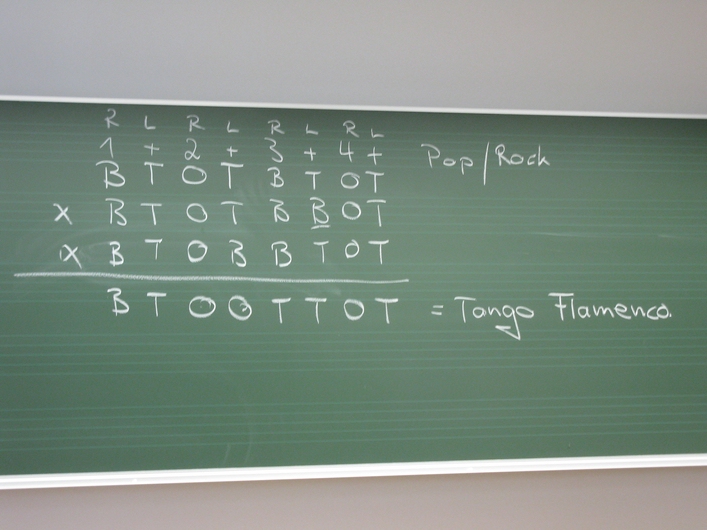 R L R L R L R L
1 + 2 + 3 + 4 + Pop/Rock
B T O T B T O T
x B T O T B B O T
x B T O B B T O T
B T O O T T O T = Tango Flamenco.